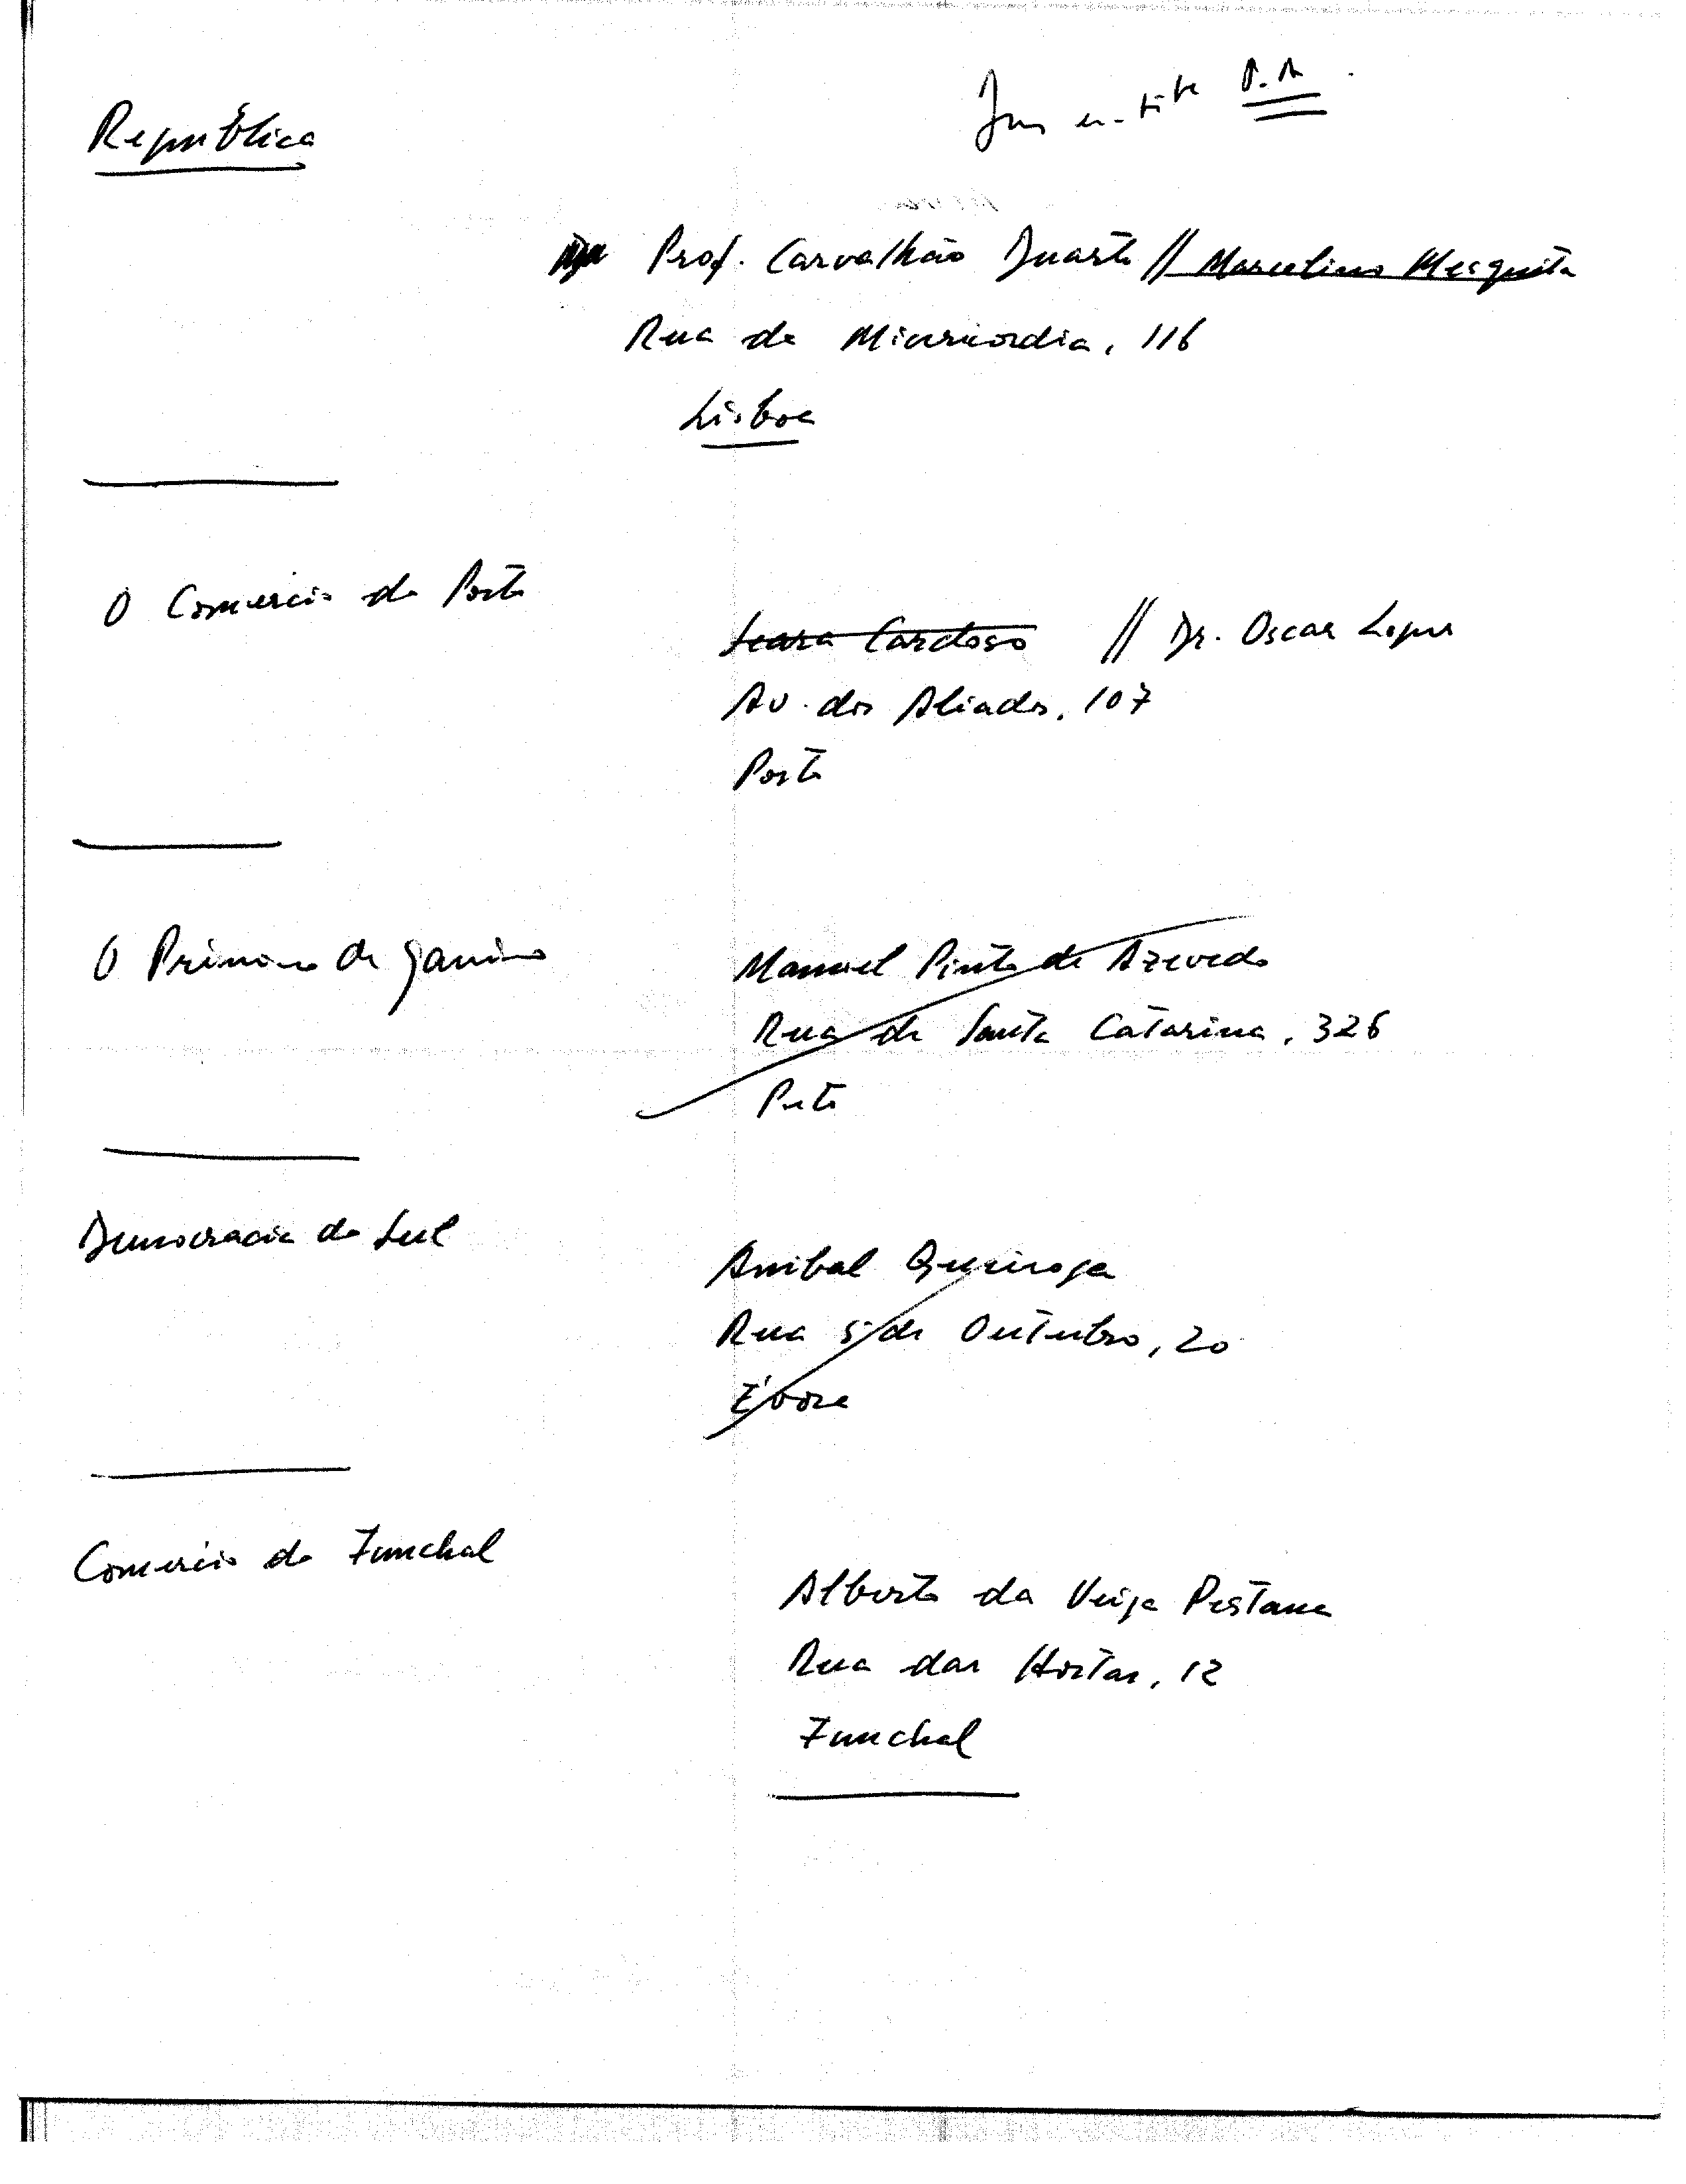 República
Prof. Carvalhão Duarte // Marcelino Mesquita
Rua da Misericordia, 116
Lisboa
O Comercio do Porto
Seara Cardoso // Dr. Oscar Lopes
Av. dos Aliados, 107
Porto
O Primeiro de Janeiro
Manuel Pinto de Azevedo
Rua de Santa Catarina, 326
Porto
Democracia do Sul
Anibal Queiroga
Rua 5 de Outubro, 20
Évora
Comercio do Funchal
Alberto da Veiga Pestana
Rua das Hortas, 12
Funchal